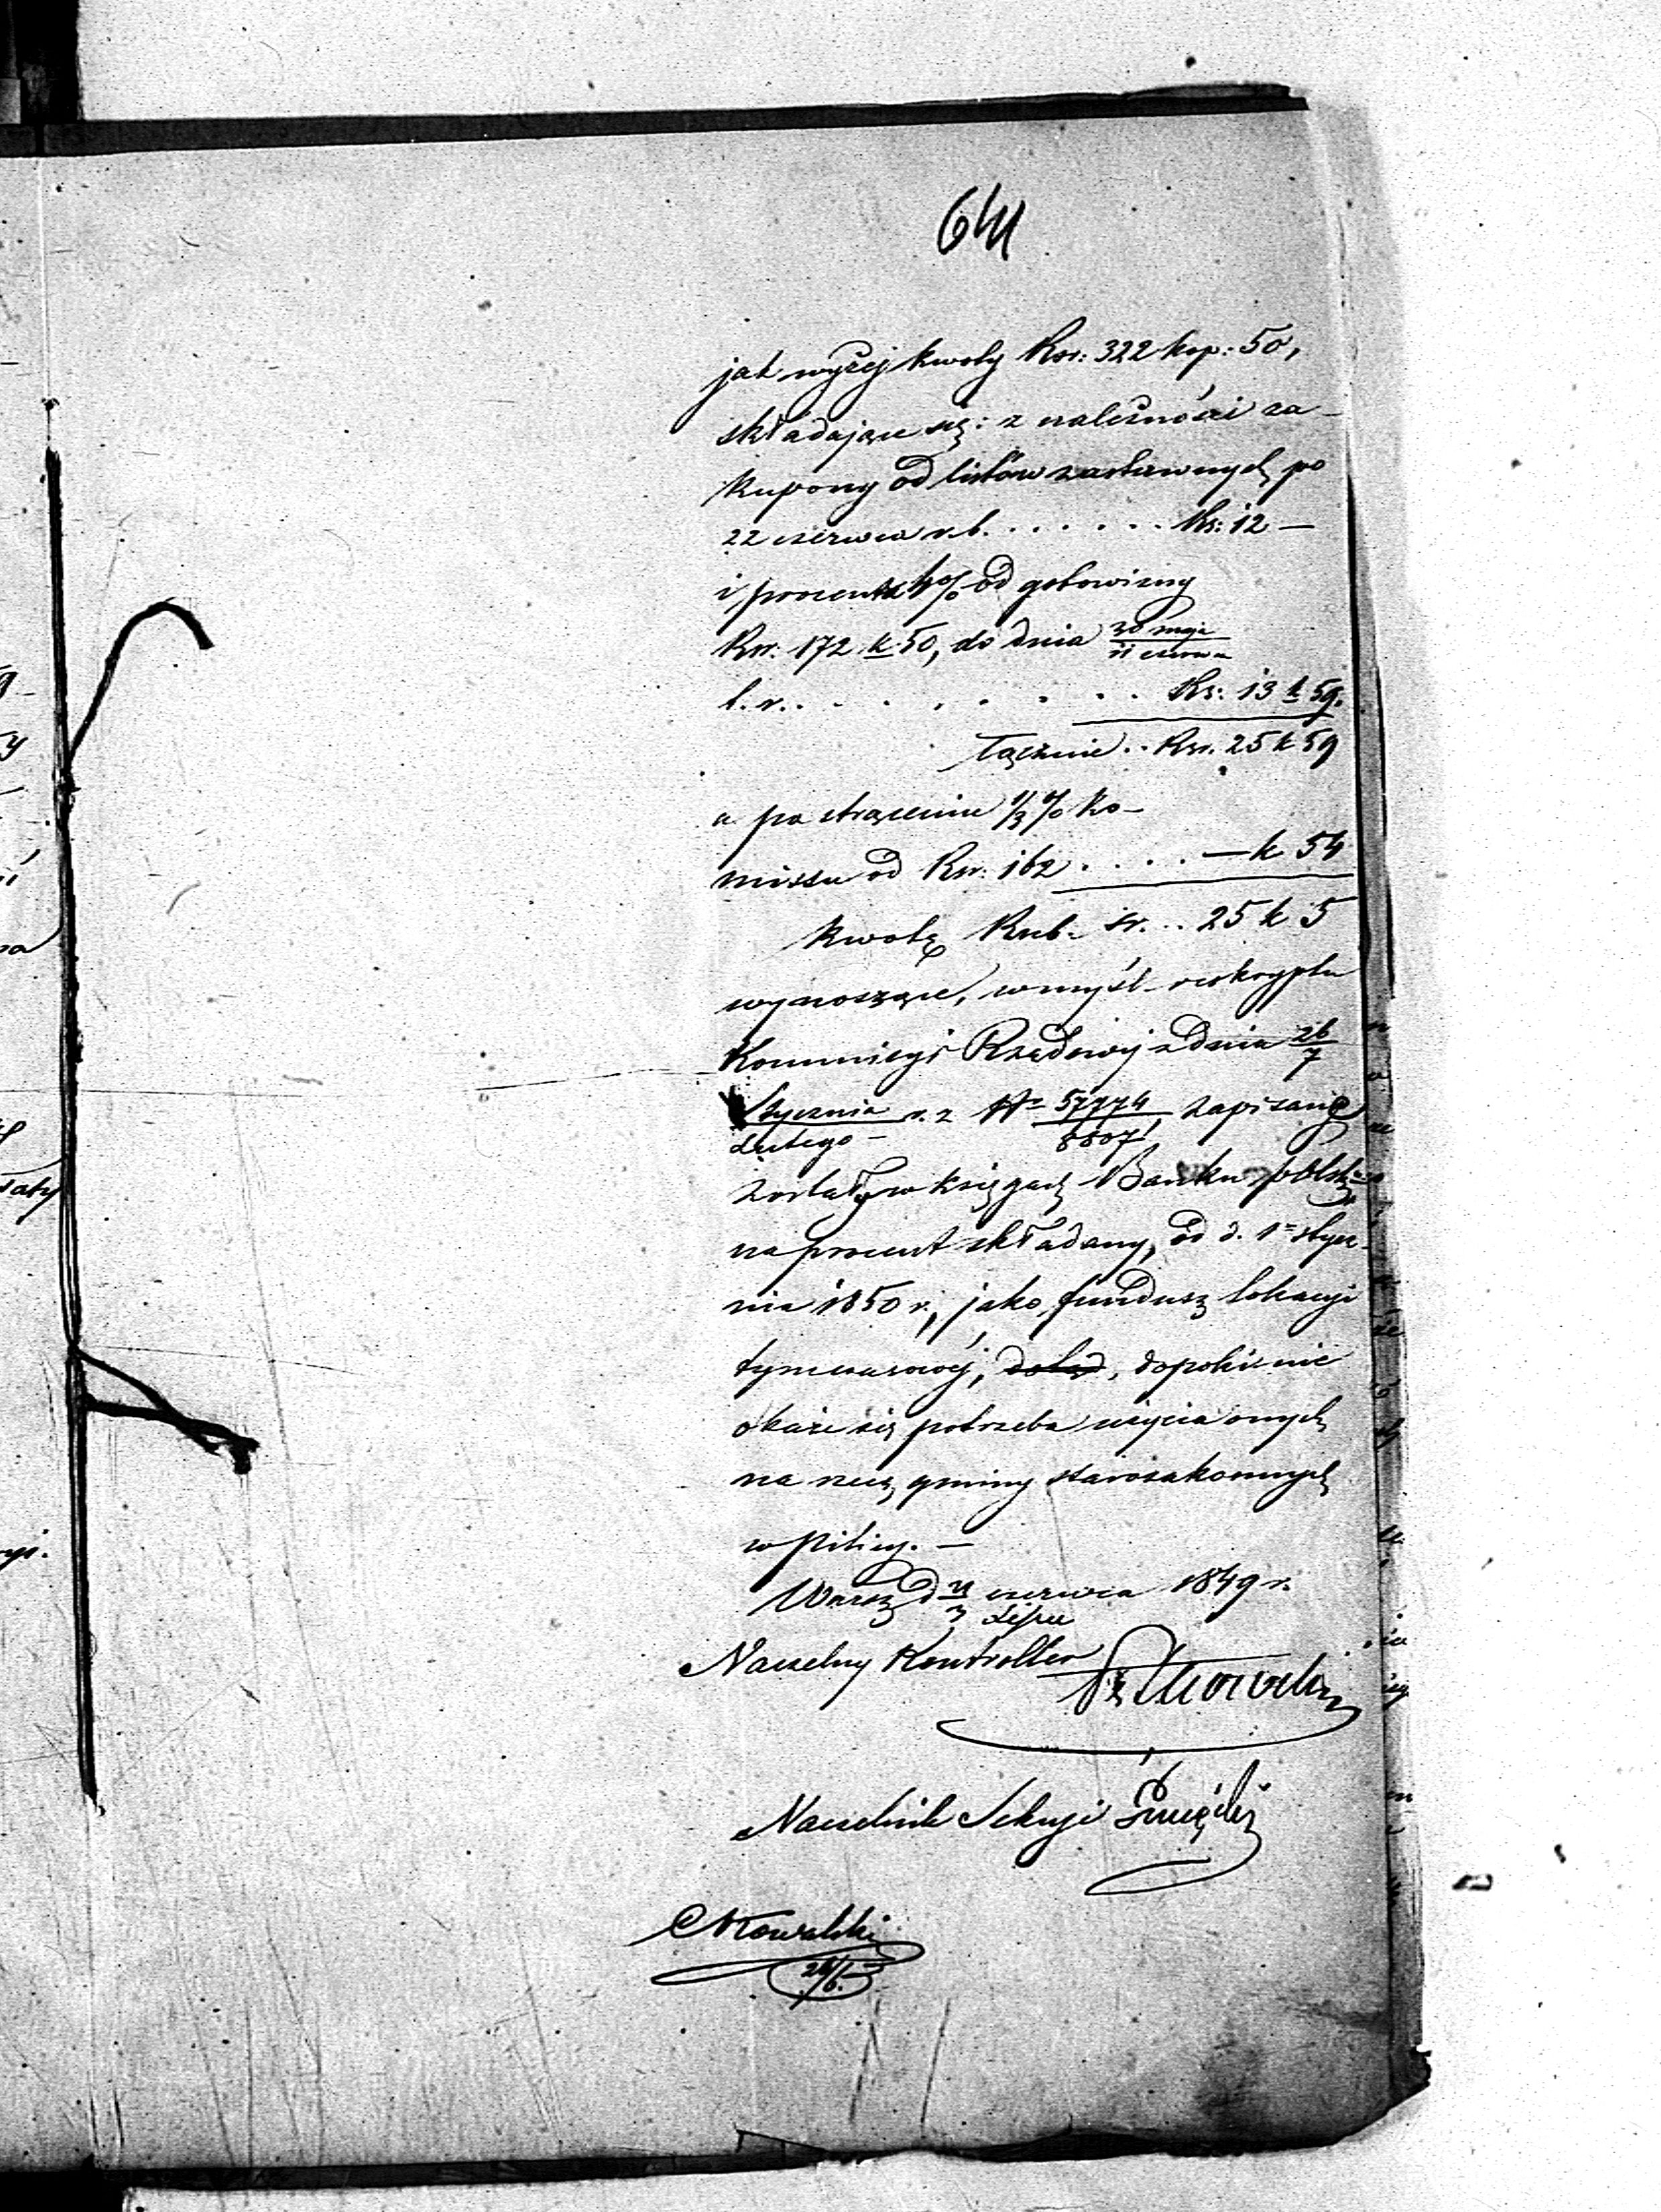 641
jak wyżej kwoty Rsr: 322 kop: 50,
składające się: z należności za
kupony od listów zastawnych po
22 czerwca r.b. . . . . . . Rs: 12 —
i procentu 4% od gotowizny
Rsr. 172 k 50, do dnia 30 maja
11 czerwca
b. r. . . . . . . . . Rs: 13 k 59.
łącznie . . Rsr. 25 k 59
a po strąceniu 1/3 % ko-
missu od Rsr: 162 . . . . — k 54
kwotę Rub. sr. . . 25 k 5
wynoszące, w myśl reskryptu
Kommissyi Rządowej z dnia 26
7
Stycznia r. z. N° 57774 zapisane
Lutego 8807
zostały w księgach Banku Polsk:
na procent składany, od d. 1° stycz-
nia 1850 r., jako fundusz lokacyi
tymczasowej, dotąd, dopokiż nie
okaże się potrzeba użycia onych
na rzecz gminy starozakonnych
w Pilicy. —
Warsz d 21 czerwca 1849 r.
3 Lipca
Naczelny Kontroller
Naczelnik Sekcyi
Kowalski